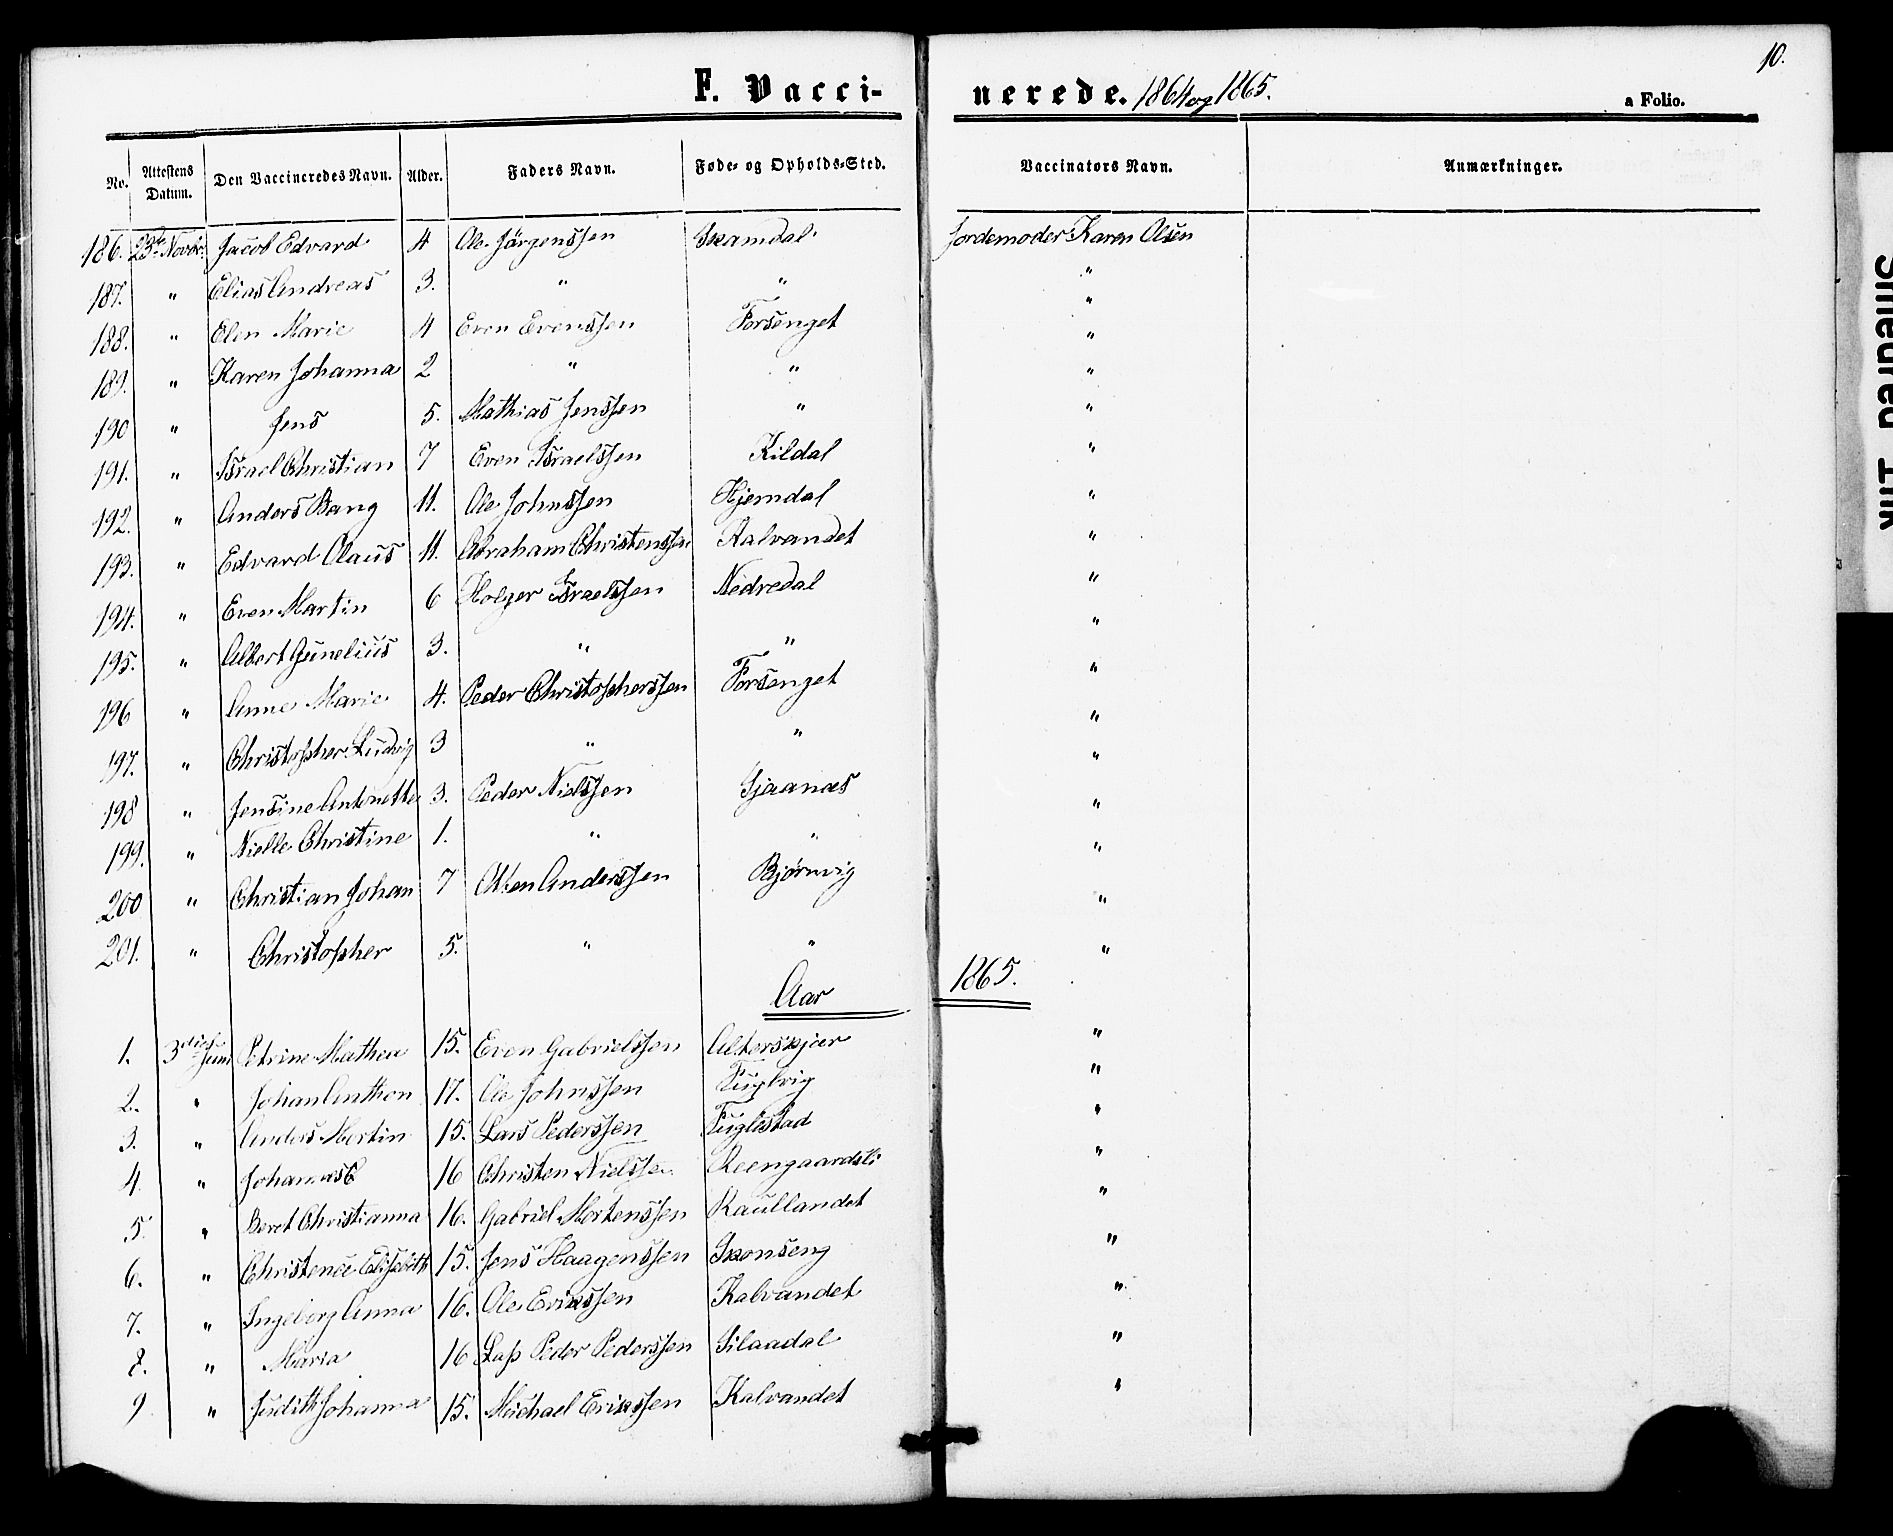 10.
F. Vaccinerede. 1864 og 1865.
a Folio.
No. | Attestens Datum. | Den Vaccineredes Navn. | Alder. | Faders Navn. | Føde- og Opholds-Sted. | Vaccinators Navn. | Anmærkninger.
186. | 23de Novbr. | Jacob Edvard | 4 | Ole Jörgenssen | Skamdal | Jordemoder Karen Olsen
187. | " | Elias Andreas | 3. | " | " | "
188. | " | Elen Marie | 4 | Even Evenssen | Forsenget | "
189. | " | Karen Johanna | 2 | " | " | "
190 | " | Jens | 5. | Mathias Jenssen | " | "
191. | " | Israel Christian | 7 | Even Israelssen | Kildal | "
192. | " | Anders Bang | 11. | Ole Johnssen | Hjemdal | "
193. | " | Edvard Olaus | 11. | Abraham Christenssen | Kalvandet | "
194. | " | Even Martin | 6 | Holger Israelssen | Nedredal | "
195. | " | Albert Gunelius | 3. | " | " | "
196 | " | Anne Marie | 4. | Peder Christopherssen | Forsenget | "
197. | " | Christopher Ludvig | 3 | " | " | "
198 | " | Jensine Antonette | 3. | Peder Nielssen | Sjaanæs | "
199. | " | Nielle Christine | 1. | " | " | "
200 | " | Christian Johan | 7 | Otten Anderssen | Bjørnvig | "
201. | " | Christopher | 5. | " | " | "
Aar 1865.
1. | 3die Juni | Petrine Mathea | 15. | Even Gabrielssen | Alterskjær | "
2. | " | Johan Anthon | 17. | Ole Johnssen | Fuglvig | "
3. | " | Anders Martin | 15. | Lars Pederssen | Fuglestad | "
4. | " | Johannes | 16 | Christen Nielssen | Reengaardsli | "
5. | " | Beret Christianna | 16. | Gabriel Mortenssen | Raullandet | "
6. | " | Christence Elisabeth | 15. | Jens Haagenssen | Skonseng | "
7. | " | Ingeborg Anna | 16. | Ole Erikssen | Kalvandet | "
8. | " | Maria | 16 | Peder Pederssen | Silaadal | "
9 | " | Judith Johanna | 15. | Michael Erikssen | Kalvandet | "